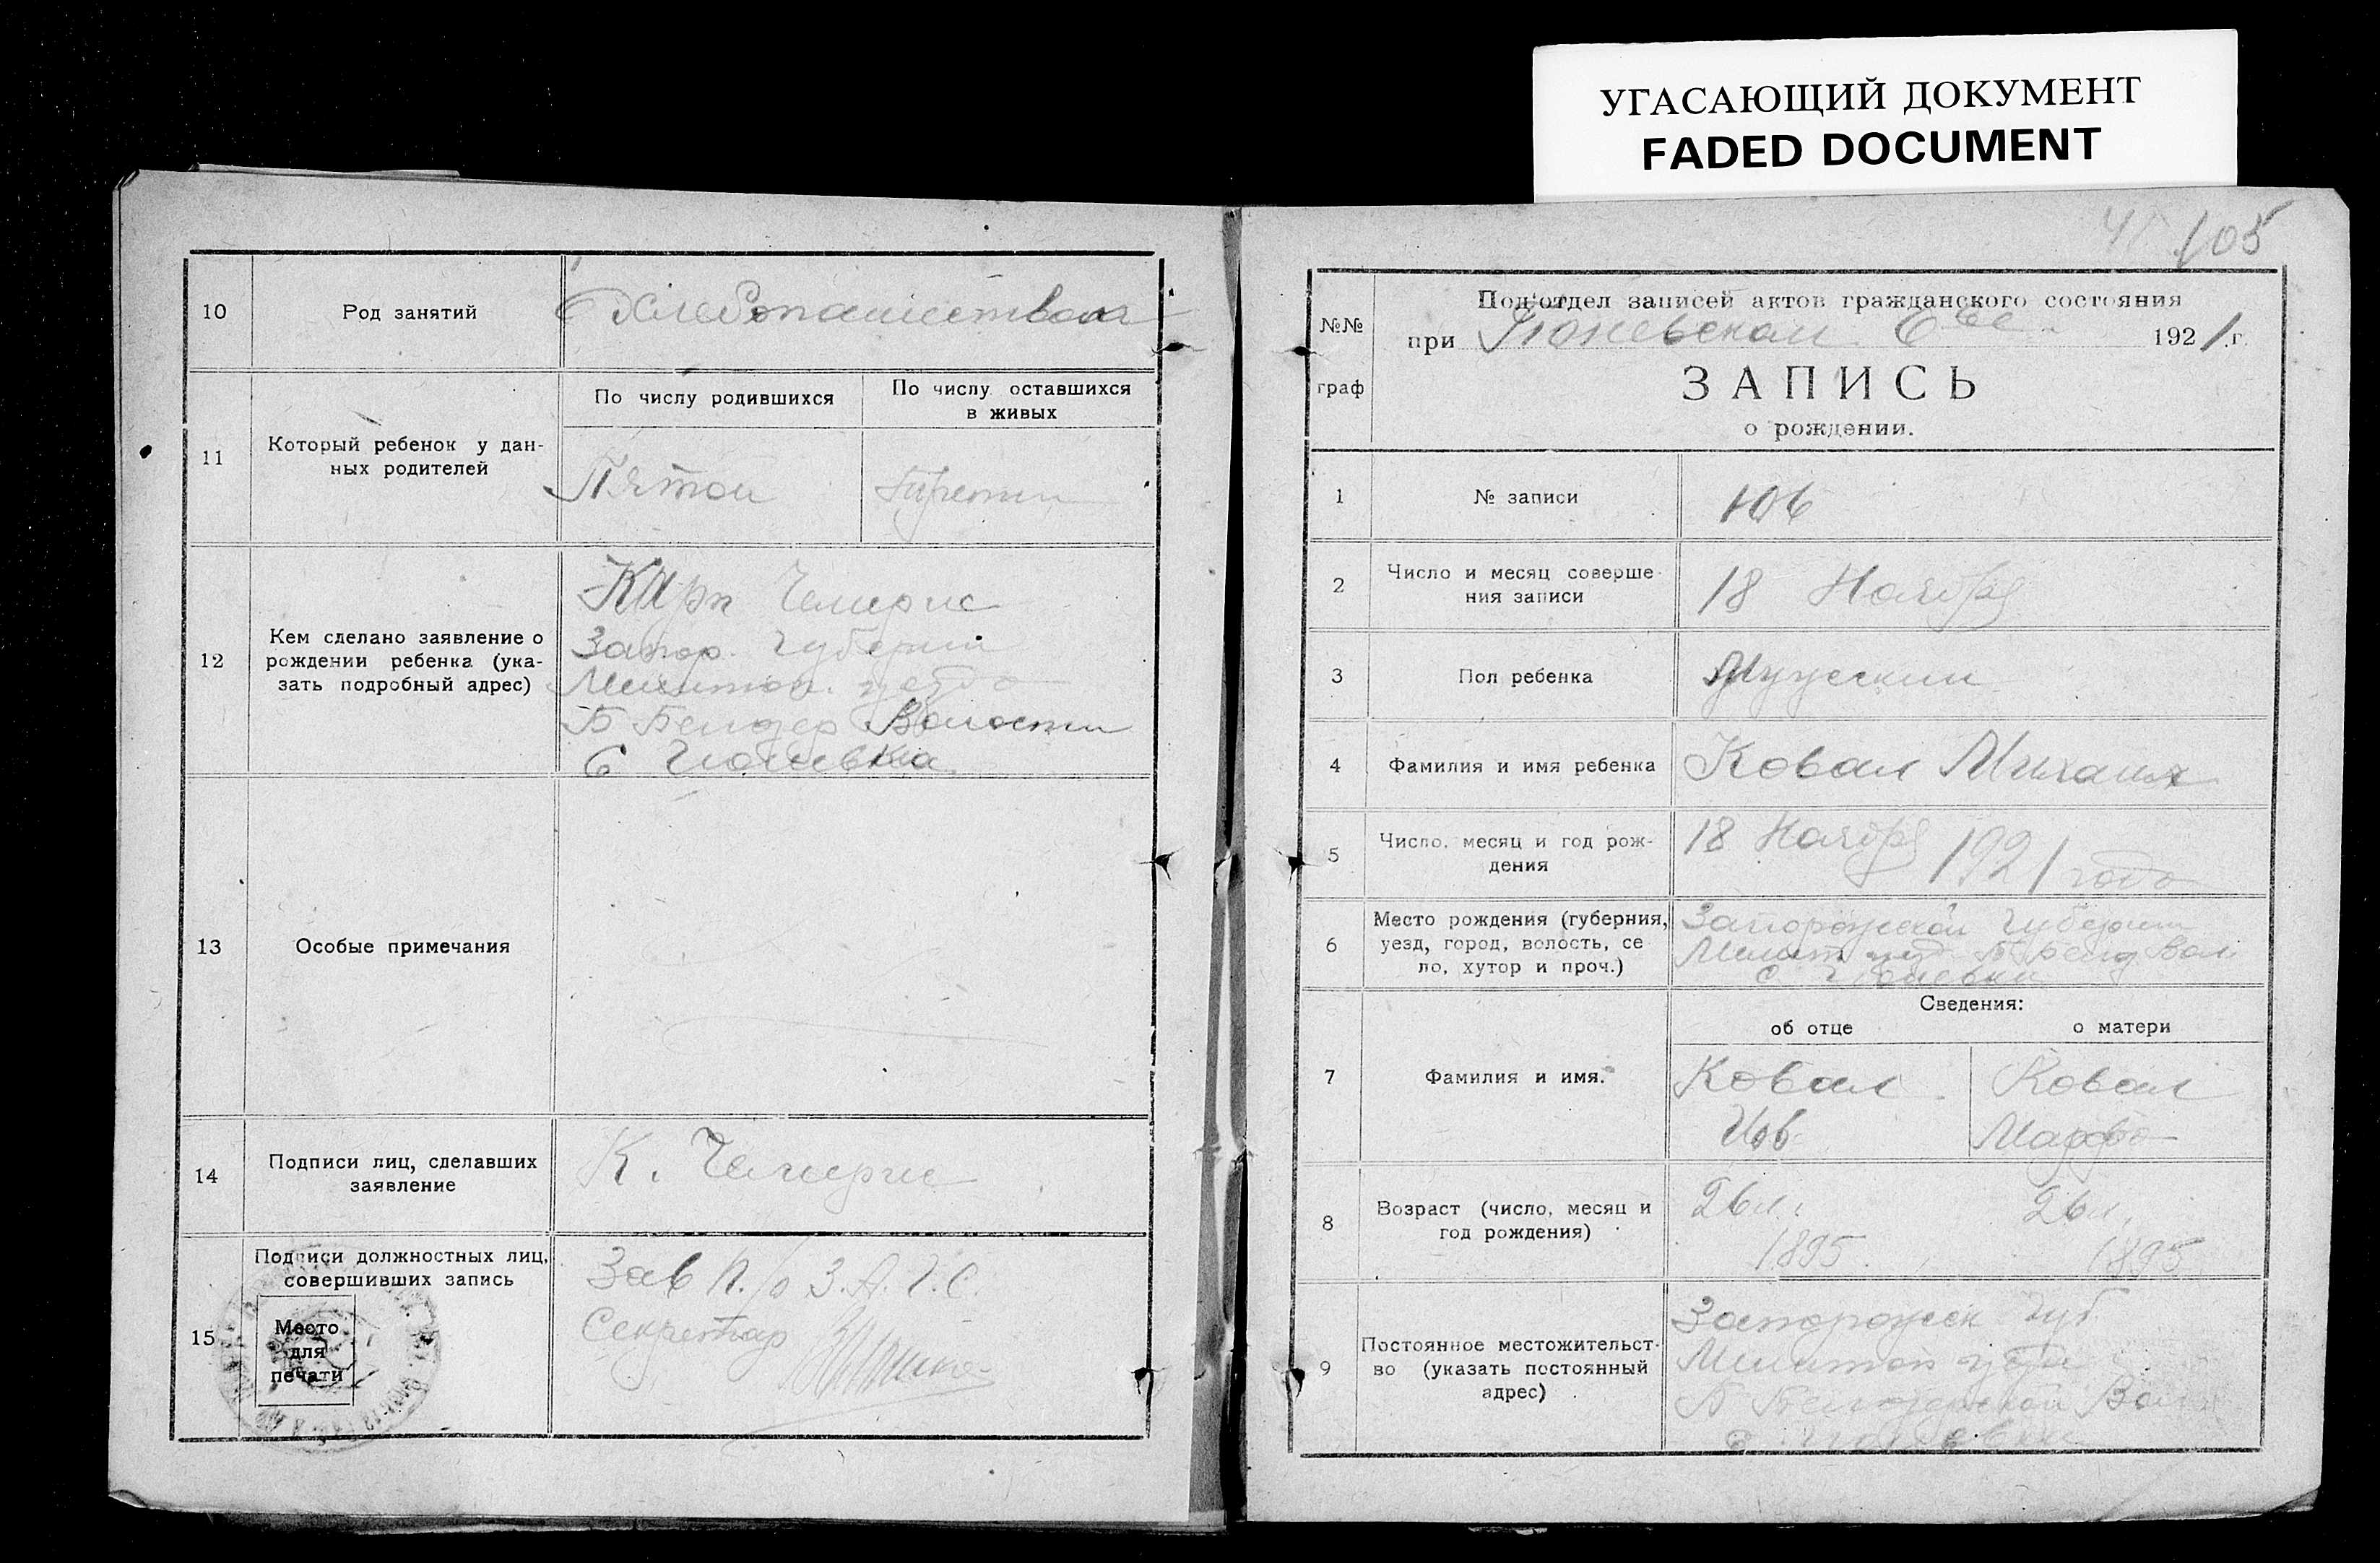 УГАСАЮЩИЙ ДОКУМЕНТ
FADED DOCUMENT
10
Род занятий
Хлебопашеством
11
Который ребенок у дан-
ных родителей
По числу родившихся
По числу оставшихся
в живых
Пятой
Трети
12
Кем сделано заявление о
рождении ребенка (ука-
зать подробный адрес)
Карп Чемерис
Запор. Губерни
Мелитоп. уезда
Б Белозер Волости
С
13
Особые примечания
14
Подписи лиц, сделавших
заявление
К. Чемерис
15
Подписи должностных лиц,
совершивших запись
Место
для
печати
Зав П./о З.А.Г.С.
Секретар
105
№№
граф
Под'отдел записей актов гражданского состояния
при 1921 г.
ЗАПИСЬ
о рождении.
1
№ записи
106
2
Число и месяц соверше-
ния записи
18 Ноября
3
Пол ребенка
Мужеский
4
Фамилия и имя ребенка
Ковал Михаил
5
Число, месяц и год рож-
дения
18 Ноября 1921 года
6
Место рождения (губерния,
уезд, город, волость, се
ло, хутор и проч.)
Запорожской Губерни
Мелит уез Б Вол
с.
Сведения:
об отце
о матери
7
Фамилия и имя.
Ковал
Иов
Ковал
Марфа
8
Возраст (число, месяц и
год рождения)
26 л.
1895
26 л.
1895
9
Постоянное местожительст-
во (указать постоянный
адрес)
Запорожск Губ
Мелитоп уезд
Б Белозерской Вол